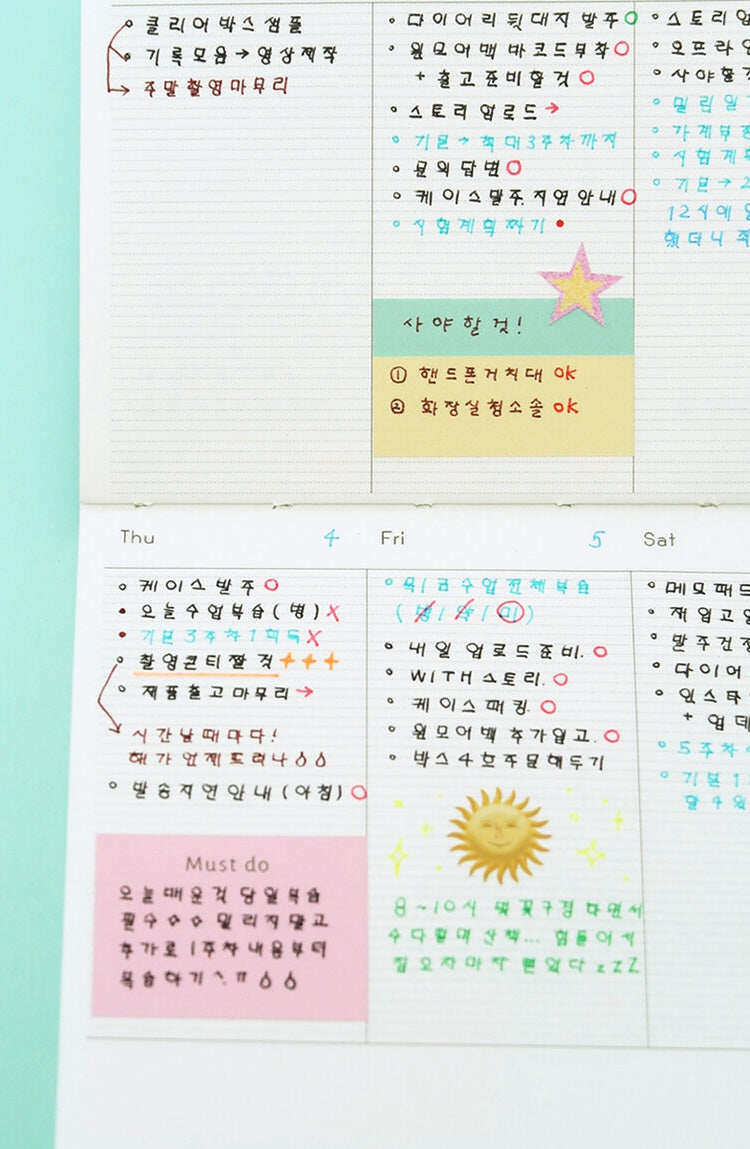 클리어박스샘플
기록모음→영상제작
주말촬영마무리
다이어리뒷대지 발주
원모어백 바코드부착
+ 출고준비할것
스토리업로드→
기본→최대3주차까지
문의답변
케이스발주 지연안내
시험계획짜기
사야할것!
① 핸드폰거치대 OK
② 화장실청소솔 OK
스토리업
오프라인
사야할것
밀린일
가계부
시험계획
기본→2
12시에
했더니
Thu 4
케이스발주
오늘수업복습(병) X
기본3주차1회독 X
촬영콘티짤것
제품출고마무리→
시간날때마다!
해가언제드러나
발송지연안내(아침)
Must do
오늘배운것 당일복습
필수 밀리지말고
추가로 1주차내용부터
복습하기
Fri 5
목/금수업전체복습
내일 업로드준비.
WITH스토리.
케이스패킹.
원모어백 추가입고.
박스4호주문해두기
8~10시 벚꽃구경하면서
수다떨며 산책... 힘들어서
집오자마자 뻗었다 zzZ
Sat
메모패드
재입고
발주건정
다이어
인스타
+ 업데
5주차
기본1